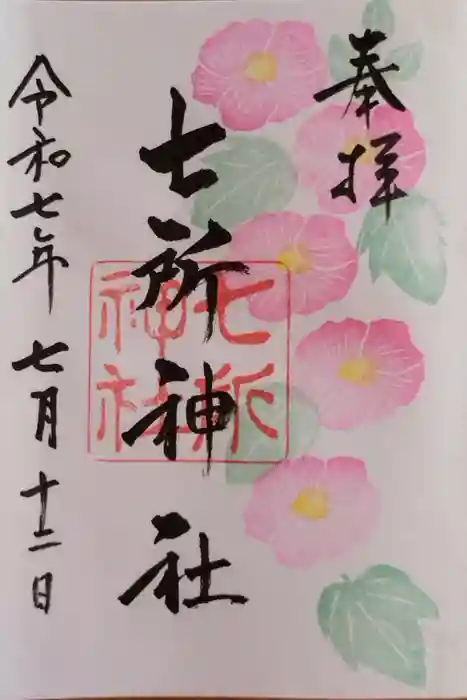 奉拝
七所神社
七所
神社
令和七年 七月十二日